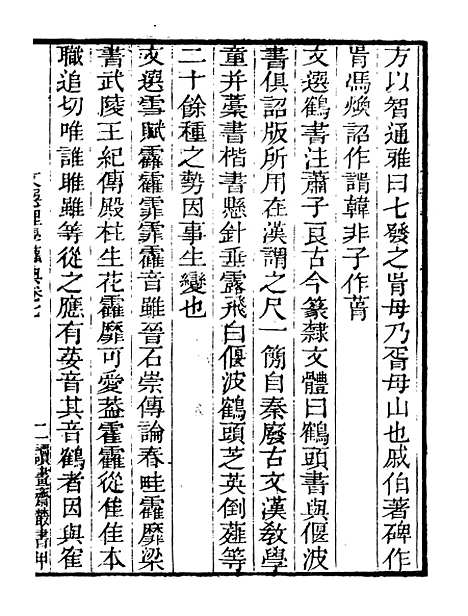 方以智通雅曰七發之胥母乃胥母山也戚伯著碑作
胥馮煥詔作諝韓非子作蓇
文選鶴書注蕭子良古今篆隸文體曰鶴頭書與偃波
書俱詔版所用在漢謂之尺一簡自秦廢古文漢敎學
童并藁書楷書懸針垂露飛白偃波鶴頭芝英倒薤等
二十餘種之勢因事生變也
文選雪賦靃靃霏霏靃音雖晉石崇傳論春畦靃靡梁
書武陵王紀傳殿柱生花靃靡可愛蓋霍靃從隹隹本
職追切唯誰雎雖等從之應有荽音其音鶴者因與隺
文選理學權輿卷七
二一讀畫齋叢書甲